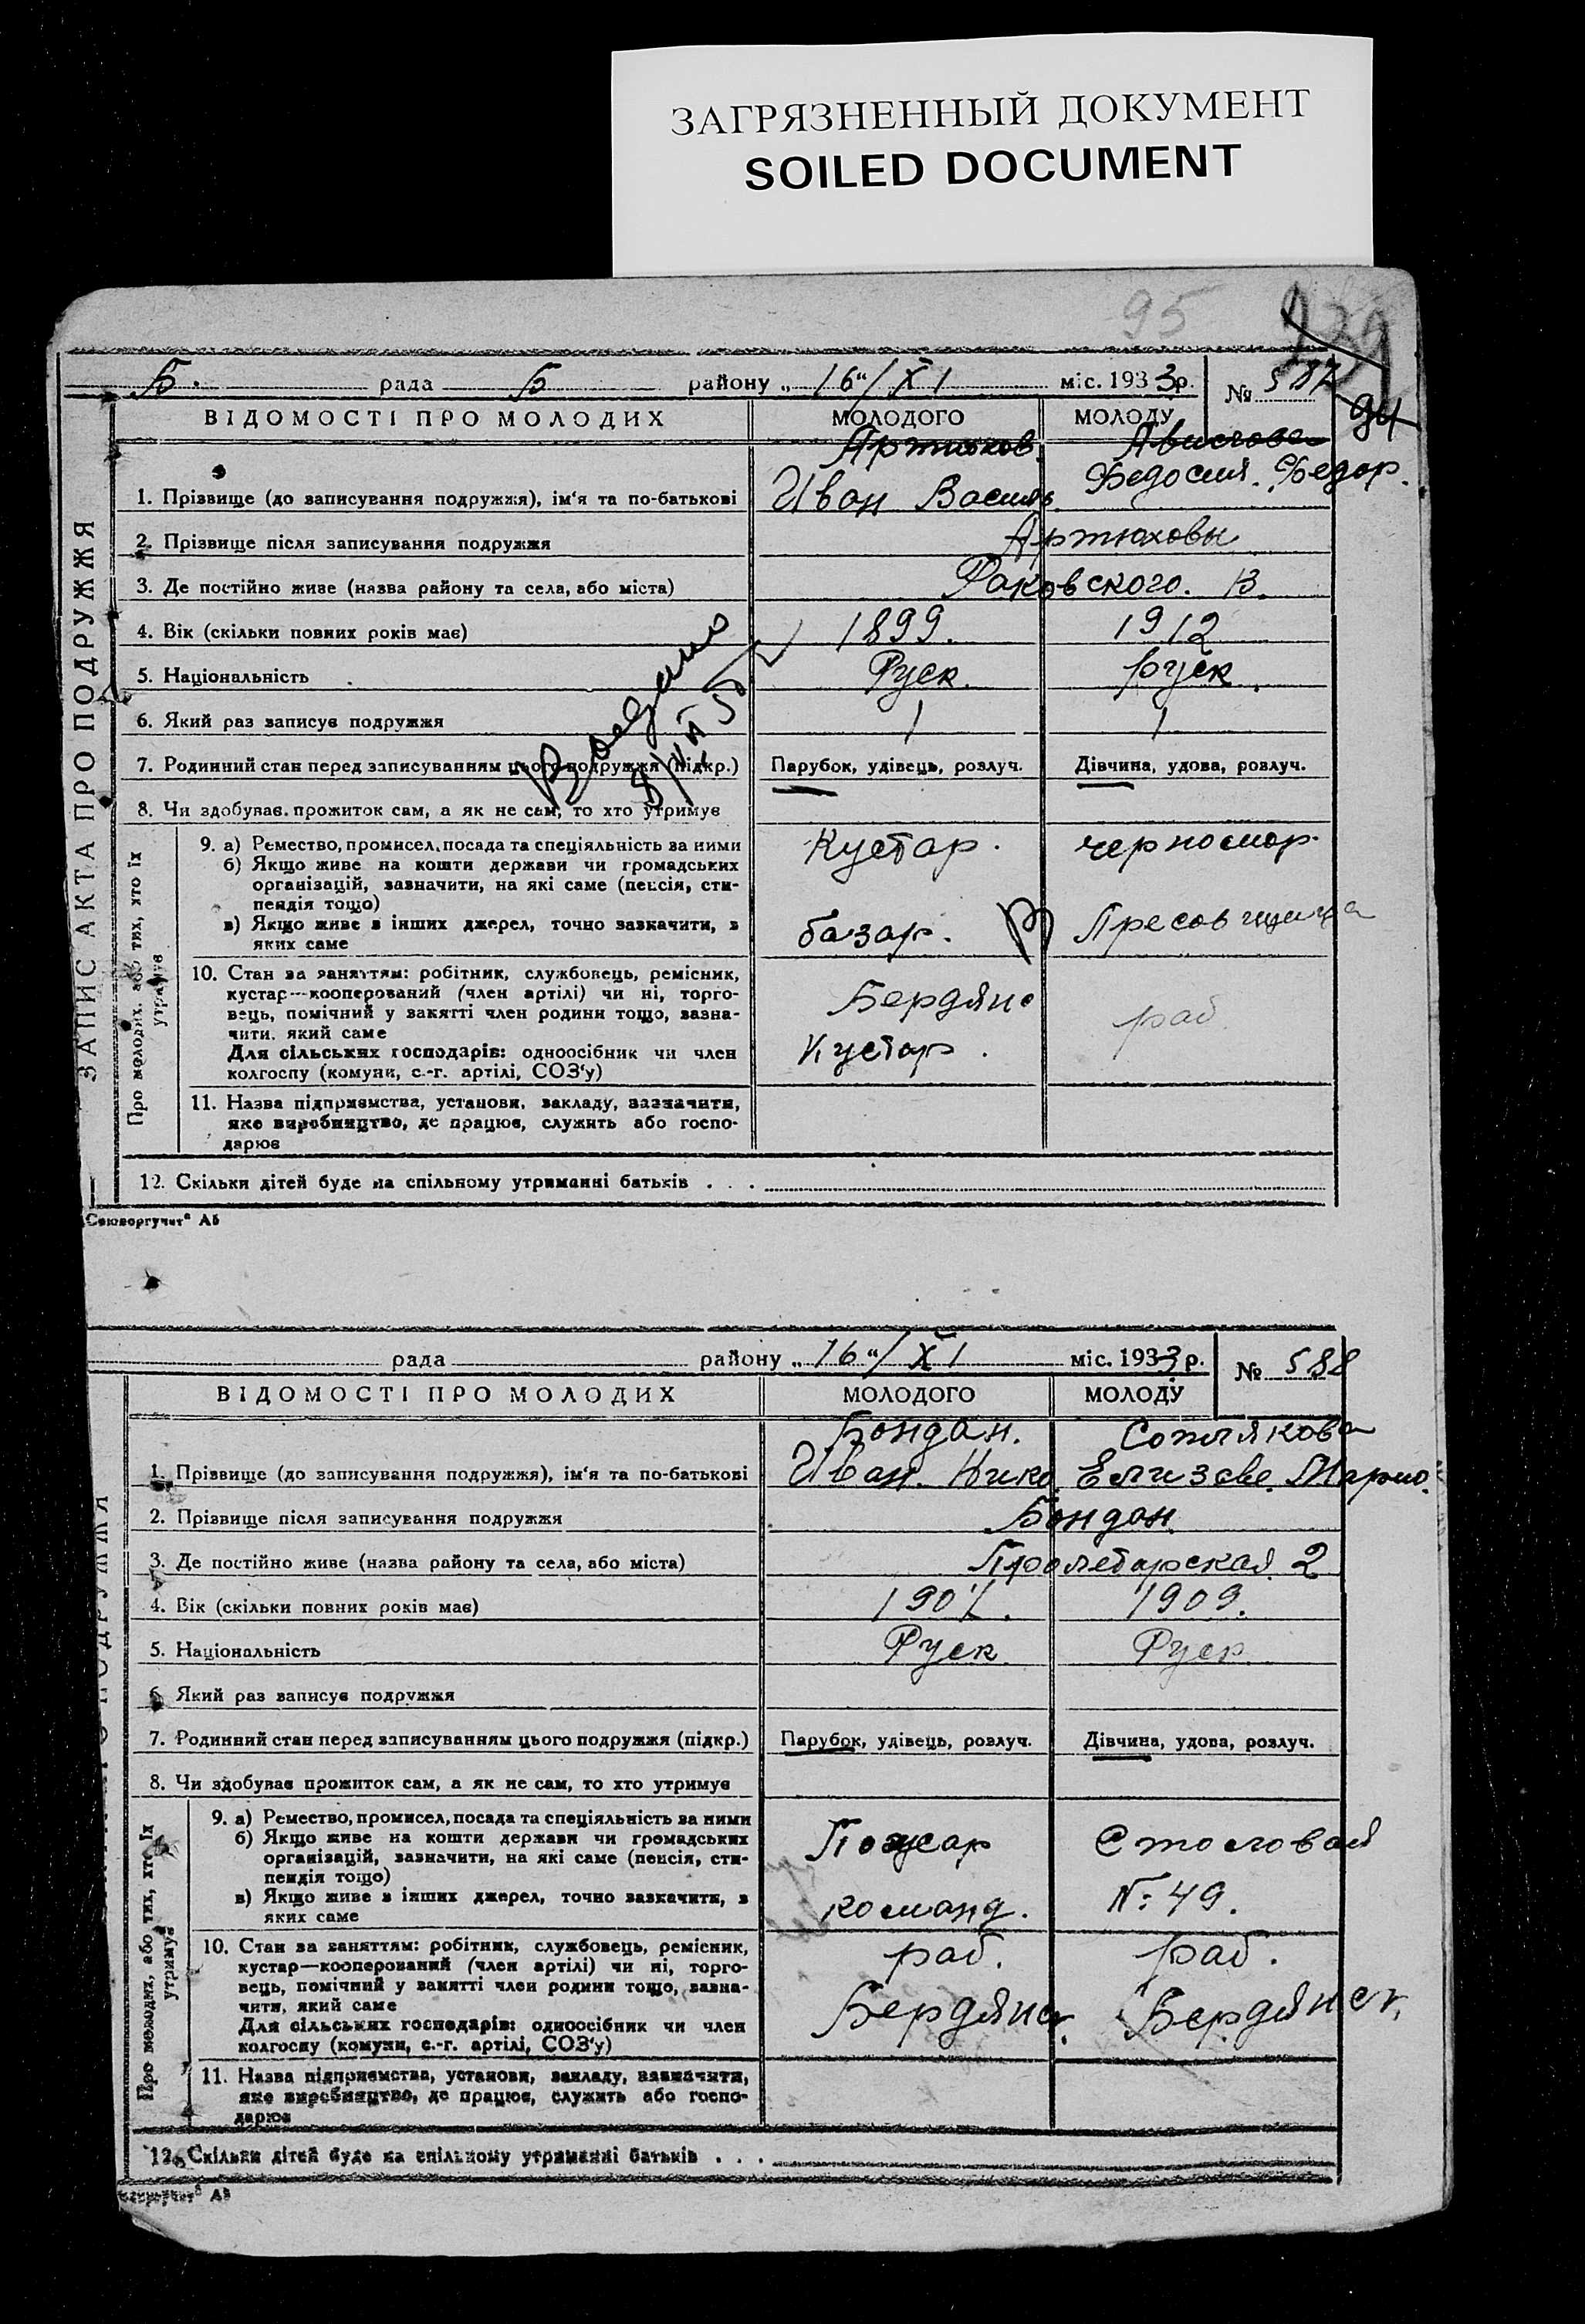 ЗАГРЯЗНЕННЫЙ ДОКУМЕНТ
SOILED DOCUMENT
95
Б. рада Б району „16“/XI міс. 1933 р. № 587
94
ЗАПИС АКТА ПРО ПОДРУЖЖЯ
ВІДОМОСТІ ПРО МОЛОДИХ МОЛОДОГО МОЛОДУ
Артюхов.
1. Прізвище (до записування подружжя), ім'я та по-батькові Иван Василь. Федосия. Федор.
2. Прізвище після записування подружжя Артюховы
3. Де постійно живе (назва району та села, або міста) Раковского. 13.
4. Вік (скільки повних років має) 1899. 1912
5. Національність Руск. Руск.
6. Який раз записує подружжя 1 1
7. Родинний стан перед записуванням цього подружжя (підкр.) Парубок, удівець, розлуч. Дівчина, удова, розлуч.
8. Чи здобував прожиток сам, а як не сам, то хто утримує
Про молодих, або тих, хто їх утримує
9. а) Ремество, промисел, посада та спеціяльність за ними Кустар. черномор.
б) Якщо живе на кошти держави чи громадських
організацій, зазначити, на які саме (пенсія, сти-
пендія тощо)
в) Якщо живе з інших джерел, точно зазначити, з базар. Пресовщица
яких саме
10. Стан за заняттям: робітник, службовець, ремісник,
кустар—кооперований (член артілі) чи ні, торго- Бердянс
вець, помічний у занятті член родини тощо, зазна- раб.
чити, який саме
Для сільських господарів: одноосібник чи член Кустар.
колгоспу (комуни, с.-г. артілі, СОЗ'у)
11. Назва підприємства, установи, закладу, зазначити,
яке виробництво, де працює, служить або госпо-
дарює
12. Скільки дітей буде на спільному утриманні батьків . . .
„Союзоргучет“ АБ
рада району „16“/XI міс. 1933 р. № 588
ВІДОМОСТІ ПРО МОЛОДИХ МОЛОДОГО МОЛОДУ
Бондан. Сотлякова
1. Прізвище (до записування подружжя), ім'я та по-батькові Иван. Нико. Елизаве.
2. Прізвище після записування подружжя Бондан.
3. Де постійно живе (назва району та села, або міста) Пролетарская. 2
4. Вік (скільки повних років має) 1907. 1909.
5. Національність Руск Руск
6. Який раз записує подружжя
7. Родинний стан перед записуванням цього подружжя (підкр.) Парубок, удівець, розлуч. Дівчина, удова, розлуч.
8. Чи здобував прожиток сам, а як не сам, то хто утримує
Про молодих, або тих, хто їх утримує
9. а) Ремество, промисел, посада та спеціяльність за ними
б) Якщо живе на кошти держави чи громадських Пожар Столовая
організацій, зазначити, на які саме (пенсія, сти-
пендія тощо)
в) Якщо живе з інших джерел, точно зазначити, з команд. №: 49.
яких саме
10. Стан за заняттям: робітник, службовець, ремісник, раб. раб.
кустар—кооперований (член артілі) чи ні, торго-
вець, помічний у занятті член родини тощо, зазна-
чити, який саме
Для сільських господарів: одноосібник чи член Бердянск. Бердянск.
колгоспу (комуни, с.-г. артілі, СОЗ'у)
11. Назва підприємства, установи, закладу, зазначити,
яке виробництво, де працює, служить або госпо-
дарює
12. Скільки дітей буде на спільному утриманні батьків . . .